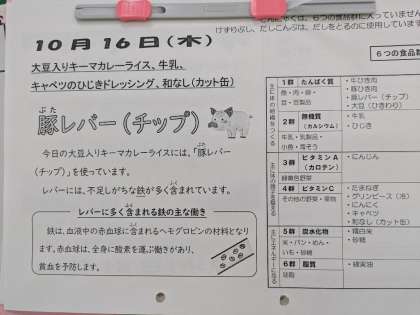 にんにくは、6つの食品群に入っていません
けずりぶし、だしこんぶは、だしをとるのに使用してい
10月16日(木)
大豆入りキーマカレーライス、牛乳、
キャベツのひじきドレッシング、和なし(カット缶)
ぶた
豚レバー(チップ)
今日の大豆入りキーマカレーライスには、「豚レバー
(チップ)」を使っています。
レバーには、不足しがちな鉄が多く含まれています。
レバーに多く含まれる鉄の主な働き
鉄は、血液中の赤血球に含まれるヘモグロビンの材料となり
ます。赤血球は、全身に酸素を運ぶ働きがあり、
貧血を予防します。
6つの食品群
主に体の組織をつくる
1群 たんぱく質
魚・肉・卵・
豆・豆製品
・牛ひき肉
・豚ひき肉
・豚レバー(チップ)
・大豆(ひきわり)
2群 無機質
(カルシウム)
牛乳・乳製品・
小魚・海そう
・牛乳
・ひじき
主に体の調子を整える
3群 ビタミンA
(カロテン)
緑黄色野菜
・にんじん
4群 ビタミンC
その他の野菜・果物
・たまねぎ
・グリンピース(冷)
・にんにく
・キャベツ
・和なし(カット缶)
主にエネルギーになる
5群 炭水化物
米・パン・めん・
いも・砂糖
・精白米
・砂糖
6群 脂質
油脂
・綿実油